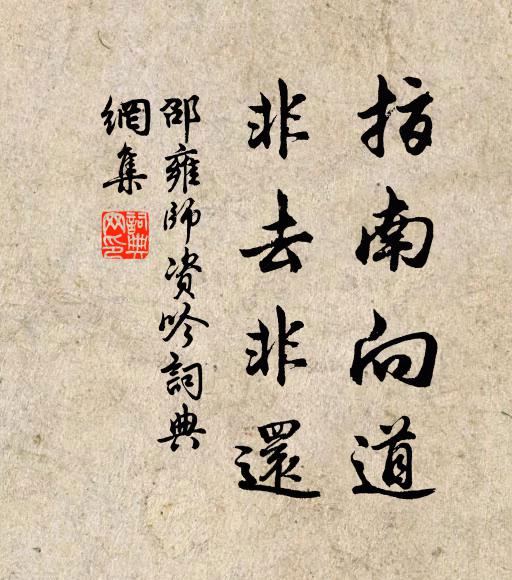 指南向道
非去非還
邵雍師資吟詞典
網集
詞典
网印